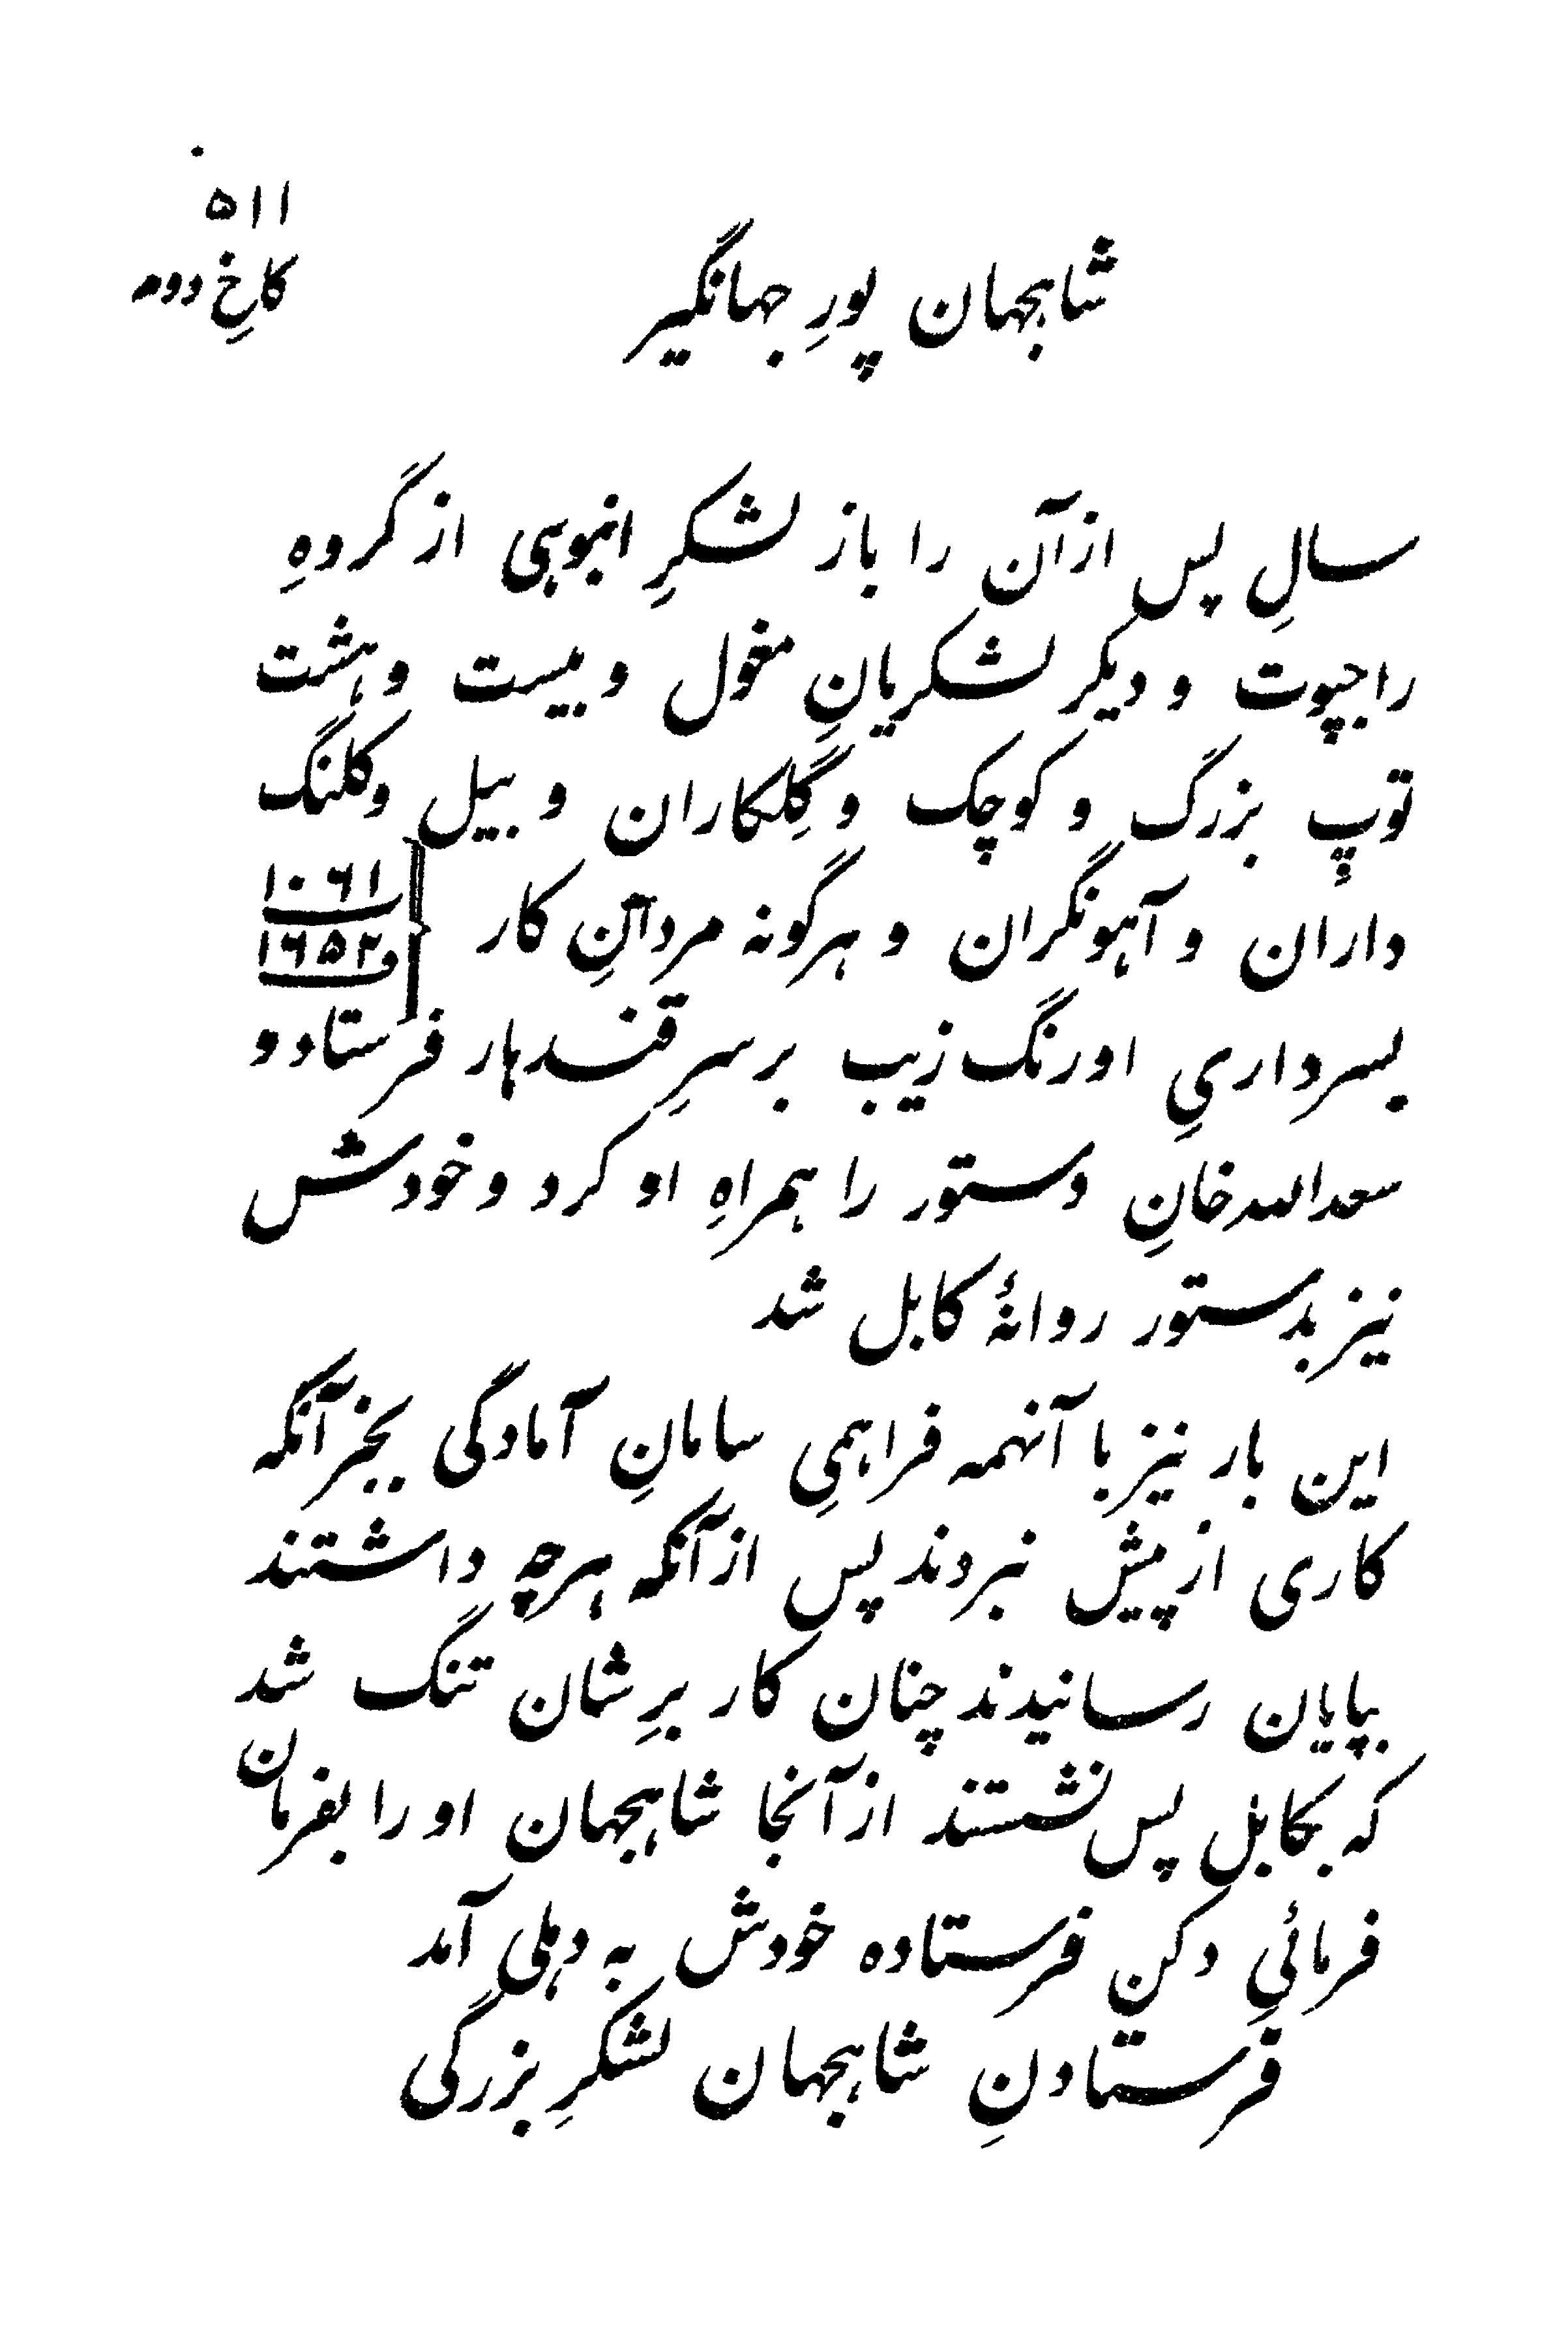 ۵۱۱
کاخِ دوم
شاہجہان پورِ جہانگیر
سالِ پس ازآن را باز لشکرِ انبوہی از گروہِ
راجپوت و دیگر لشکریانِ مغول و بیست و ہشت
توپ بزرگ و کوچک و گِلکاران و بیل و کلنگ
داران و آہونگران و ہرگونہ مردانِ کار
۱۰۶۱
و ۱۶۵۲
بسرداریِ اورنگ زیب برسرِ قندہار فرستاد و
سعداللہ خانِ دستور را ہمراہِ او کرد و خودش
نیز بدستور روانۂ کابل شد
این بار نیز با آنہمہ فراہمیِ سامانِ آمادگی بجز آنکہ
کاری از پیش نبردند پس ازآنکہ ہرچہ داشتند
بپایان رسانیدند چنان کار برِشان تنگ شد
کہ بکابل پس نشستند ازآنجا شاہجہان او را بفرمان
فرمائیِ دکن فرستادہ خودش بہ دہلی آمد
فرستادنِ شاہجہان لشکرِ بزرگی